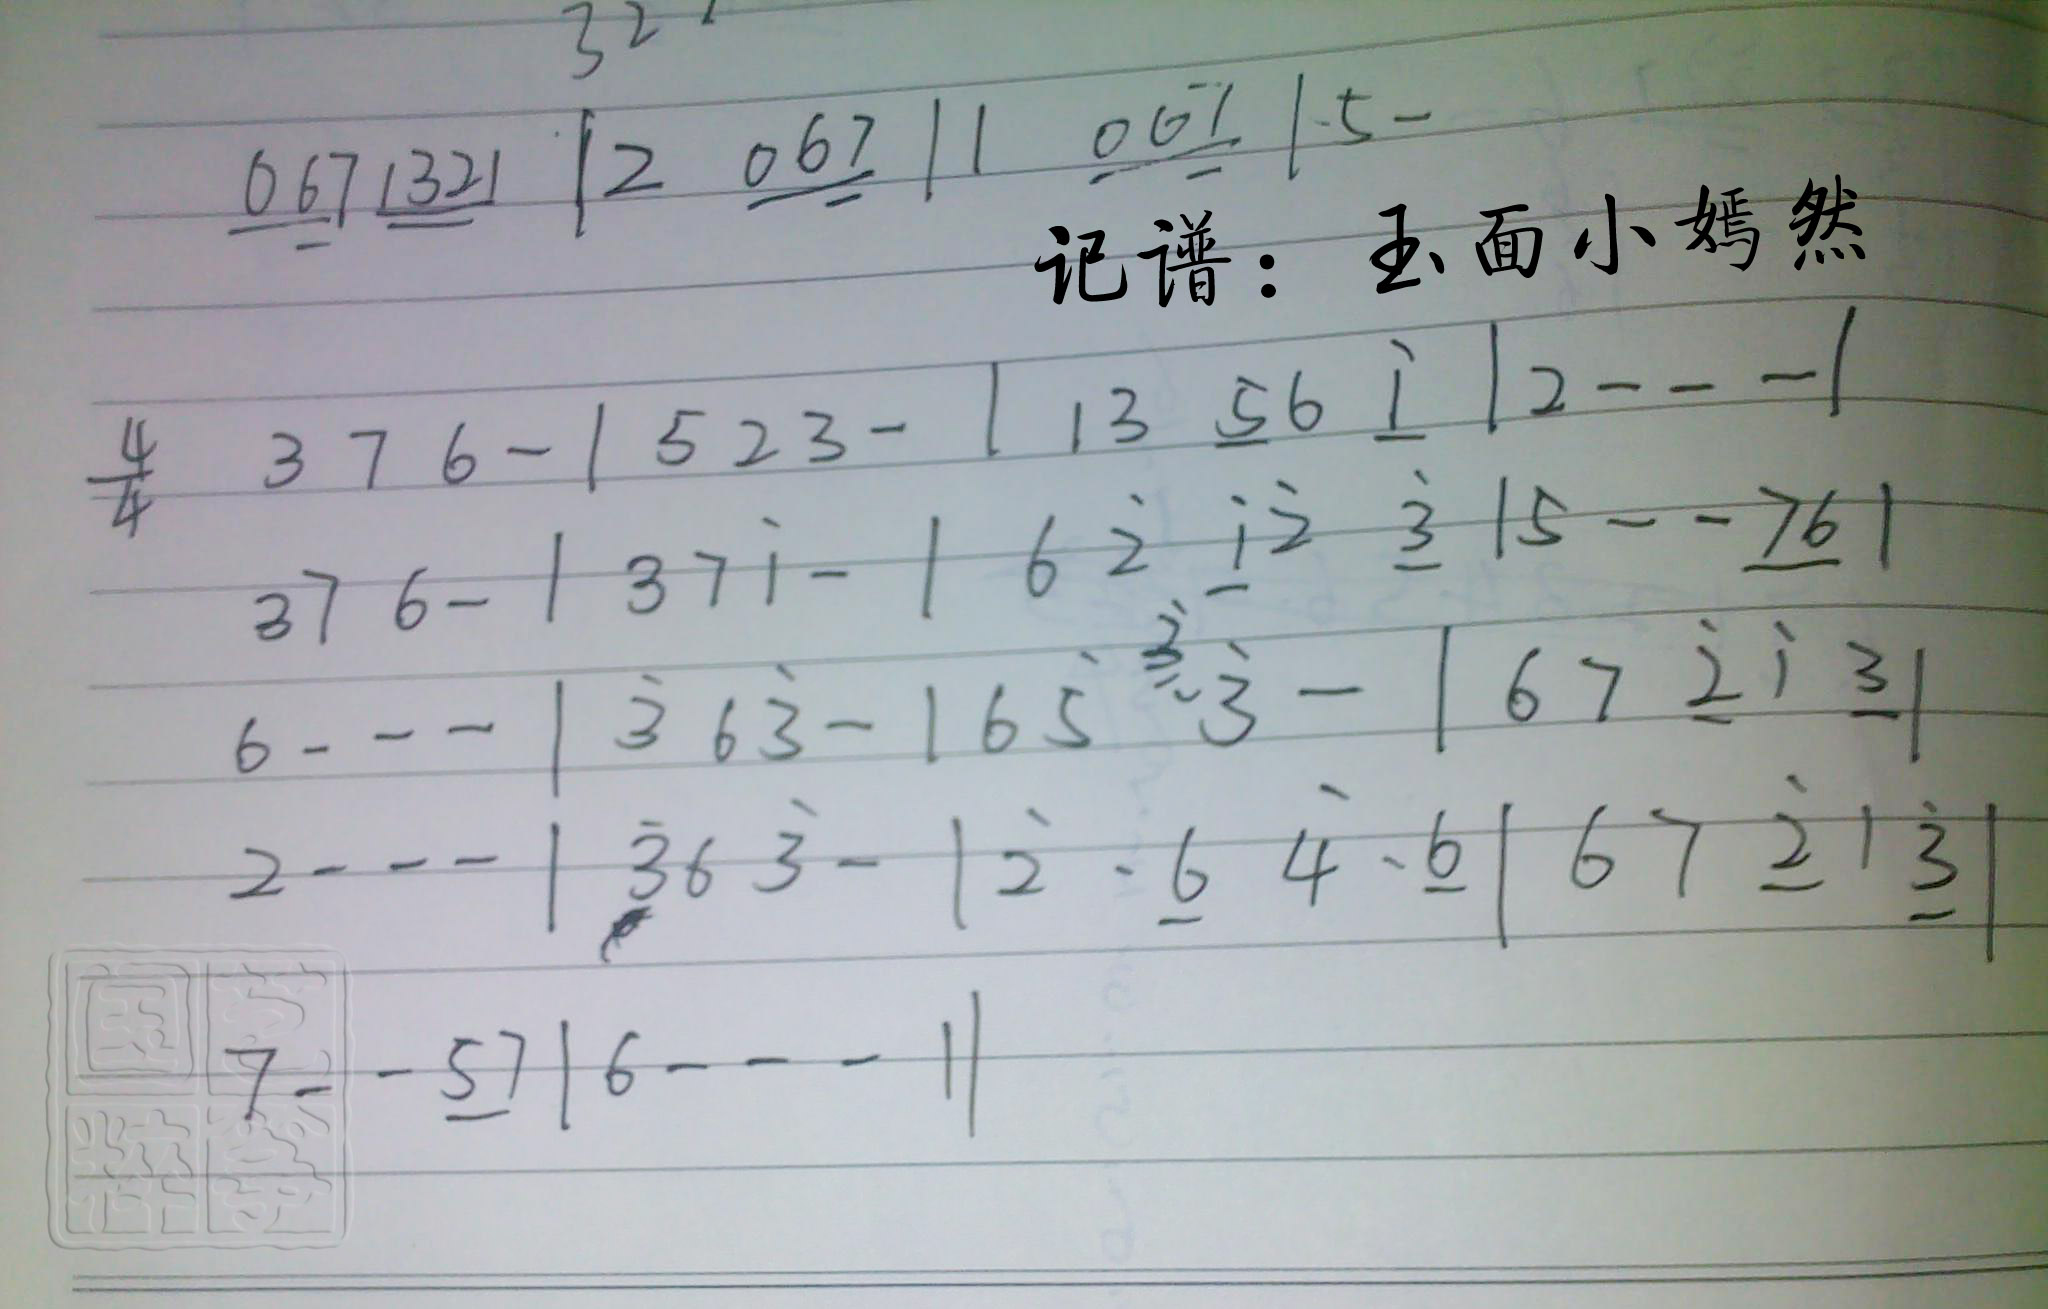 32
0671321 | 2 067 | 1 061 | 5 -
记谱：玉面小嫣然
4/4 3 7 6 - | 5 2 3 - | 1 3 5 6 i | 2 - - - |
3 7 6 - | 3 7 i - | 6 2̇ i 2̇ 3̇ | 5 - - 76 |
6 - - - | 3̇ 6 3̇ - | 6 5̇ 3̇ 3̇ - | 6 7 2̇ i 3 |
2 - - - | 3̇ 6 3̇ - | 2̇ · 6 4̇ · 6 | 6 7 2̇ 1 3̇ |
7 - - 5 7 | 6 - - - ||